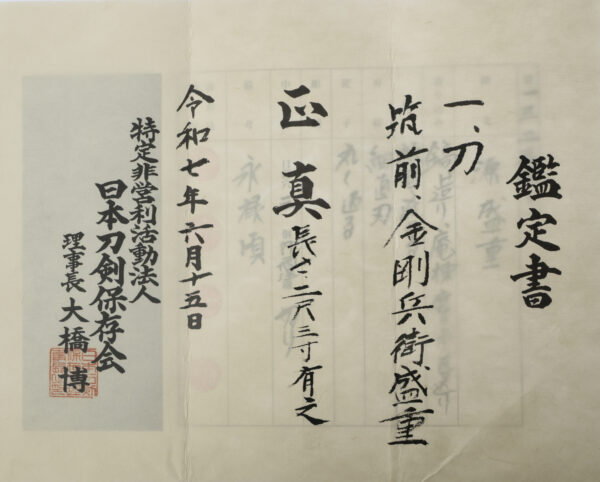 鑑定書
一、刀
筑前、金剛兵衛盛重
正真 長さ、二尺三寸有之
令和七年六月十五日
特定非営利活動法人
日本刀剣保存会
理事長 大橋 博